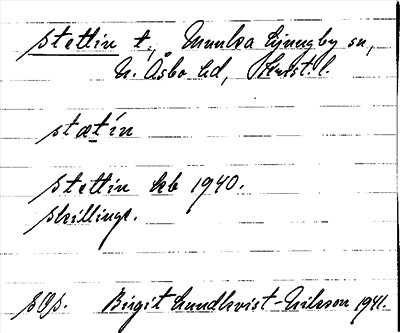 Stettin t., Munka Ljungby sn,
N. Åsbo hd, Krist. l.
stætín
Stettin kb 1940.
Skillinge.
sOs. Birgit Lundkvist-Nilsson 1941.